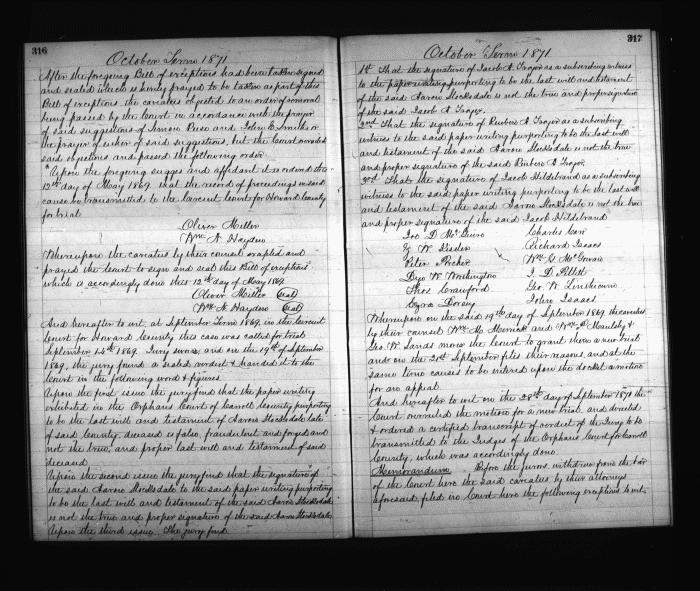 316
October Term 1871
After the foregoing Bill of exceptions had been taken signed
and sealed which is hereby prayed to be taken as part of this
Bill of exceptions the caveatees objected to an order of removal
being passed by the Court in accordance with the prayer
of said suggestions of and John E. Smith or
the prayer of either of said suggestions, but the Court overruled
said objections and passed the following order
Upon the foregoing sugges and affidavit it is ordered this
12th day of May 1869 that the record of proceedings in said
cause be transmitted to the Circuit Court for Howard County
for trial
Oliver Miller
Wm N Hayden
Whereupon the caveatees by their counsel excepted and
prayed the Court to sign and seal this Bill of exceptions
which is accordingly done this 12th day of May 1869
Oliver Miller (seal)
Wm N Hayden (seal)
And hereafter to wit, at September Term 1869, in the Circuit
Court for Howard County this case was called for trial
September 1869. Jury sworn and on the 19th of September
1869, the jury found a sealed verdict & handed it to the
Court in the following words & figures
Upon the first issue the jury find that the paper writing
exhibited in the Orphans Court of Carroll County purporting
to be the last will and testament of Aaron Stocksdale late
of said County, deceased is false, fraudulent and forged and
not the true, and proper last will and testament of said
deceased
Upon the second issue the jury find that the signature of
the said Aaron Stocksdale to the said paper writing purporting
to be the last will and testament of the said Aaron Stocksdale
is not the true and proper signature of the said Aaron Stocksdale
Upon the third issue The jury find
317
October Term 1871
1st That the signature of Jacob H Frazer as a subscribing witness
to the paper writing purporting to be the last will and testament
of the said Aaron Stocksdale is not the true and proper signature
of the said Jacob Frazer.
2nd That the signature of Reubens Frazer as a subscribing
witness to the said paper writing purporting to be the last will
and testament of the said Aaron Stocksdale is not the true
and proper signature of the said Reubens Frazer
3rd That the signature of Jacob Hildebrand as a subscribing
witness to the said paper writing purporting to be the last will
and testament of the said Aaron Stocksdale is not the true
and proper signature of the said Jacob Hildebrand
Jno D McGuire Charles Carr
W. Richard Isaacs
Peter Wm C McGowan
Geo W. Worthington J. D.
Thos Crawford Geo. W. Linthicum
Ezra Dorsey John Isaacs
Whereupon on the said 19th day of September 1869 the caveatees
by their counsel Wm McMerrick and Wm P Maulsby &
Geo. W. Sands move the Court to grant them a new trial
and on the 21st September files their reasons, and at the
same time causes to be entered upon the docket a motion
for an appeal.
And hereafter to wit on the 28th day of September 1870 the
Court overruled the motion for a new trial, and directed
& ordered a certified transcript of verdict of the Jury to be
transmitted to the Judges of the Orphans Court for Carroll
County, which was accordingly done.
Memorandum Before the jurors withdrew from the bar
of the Court here the said caveatees by their attorneys
aforesaid filed in Court here the following exceptions to wit.